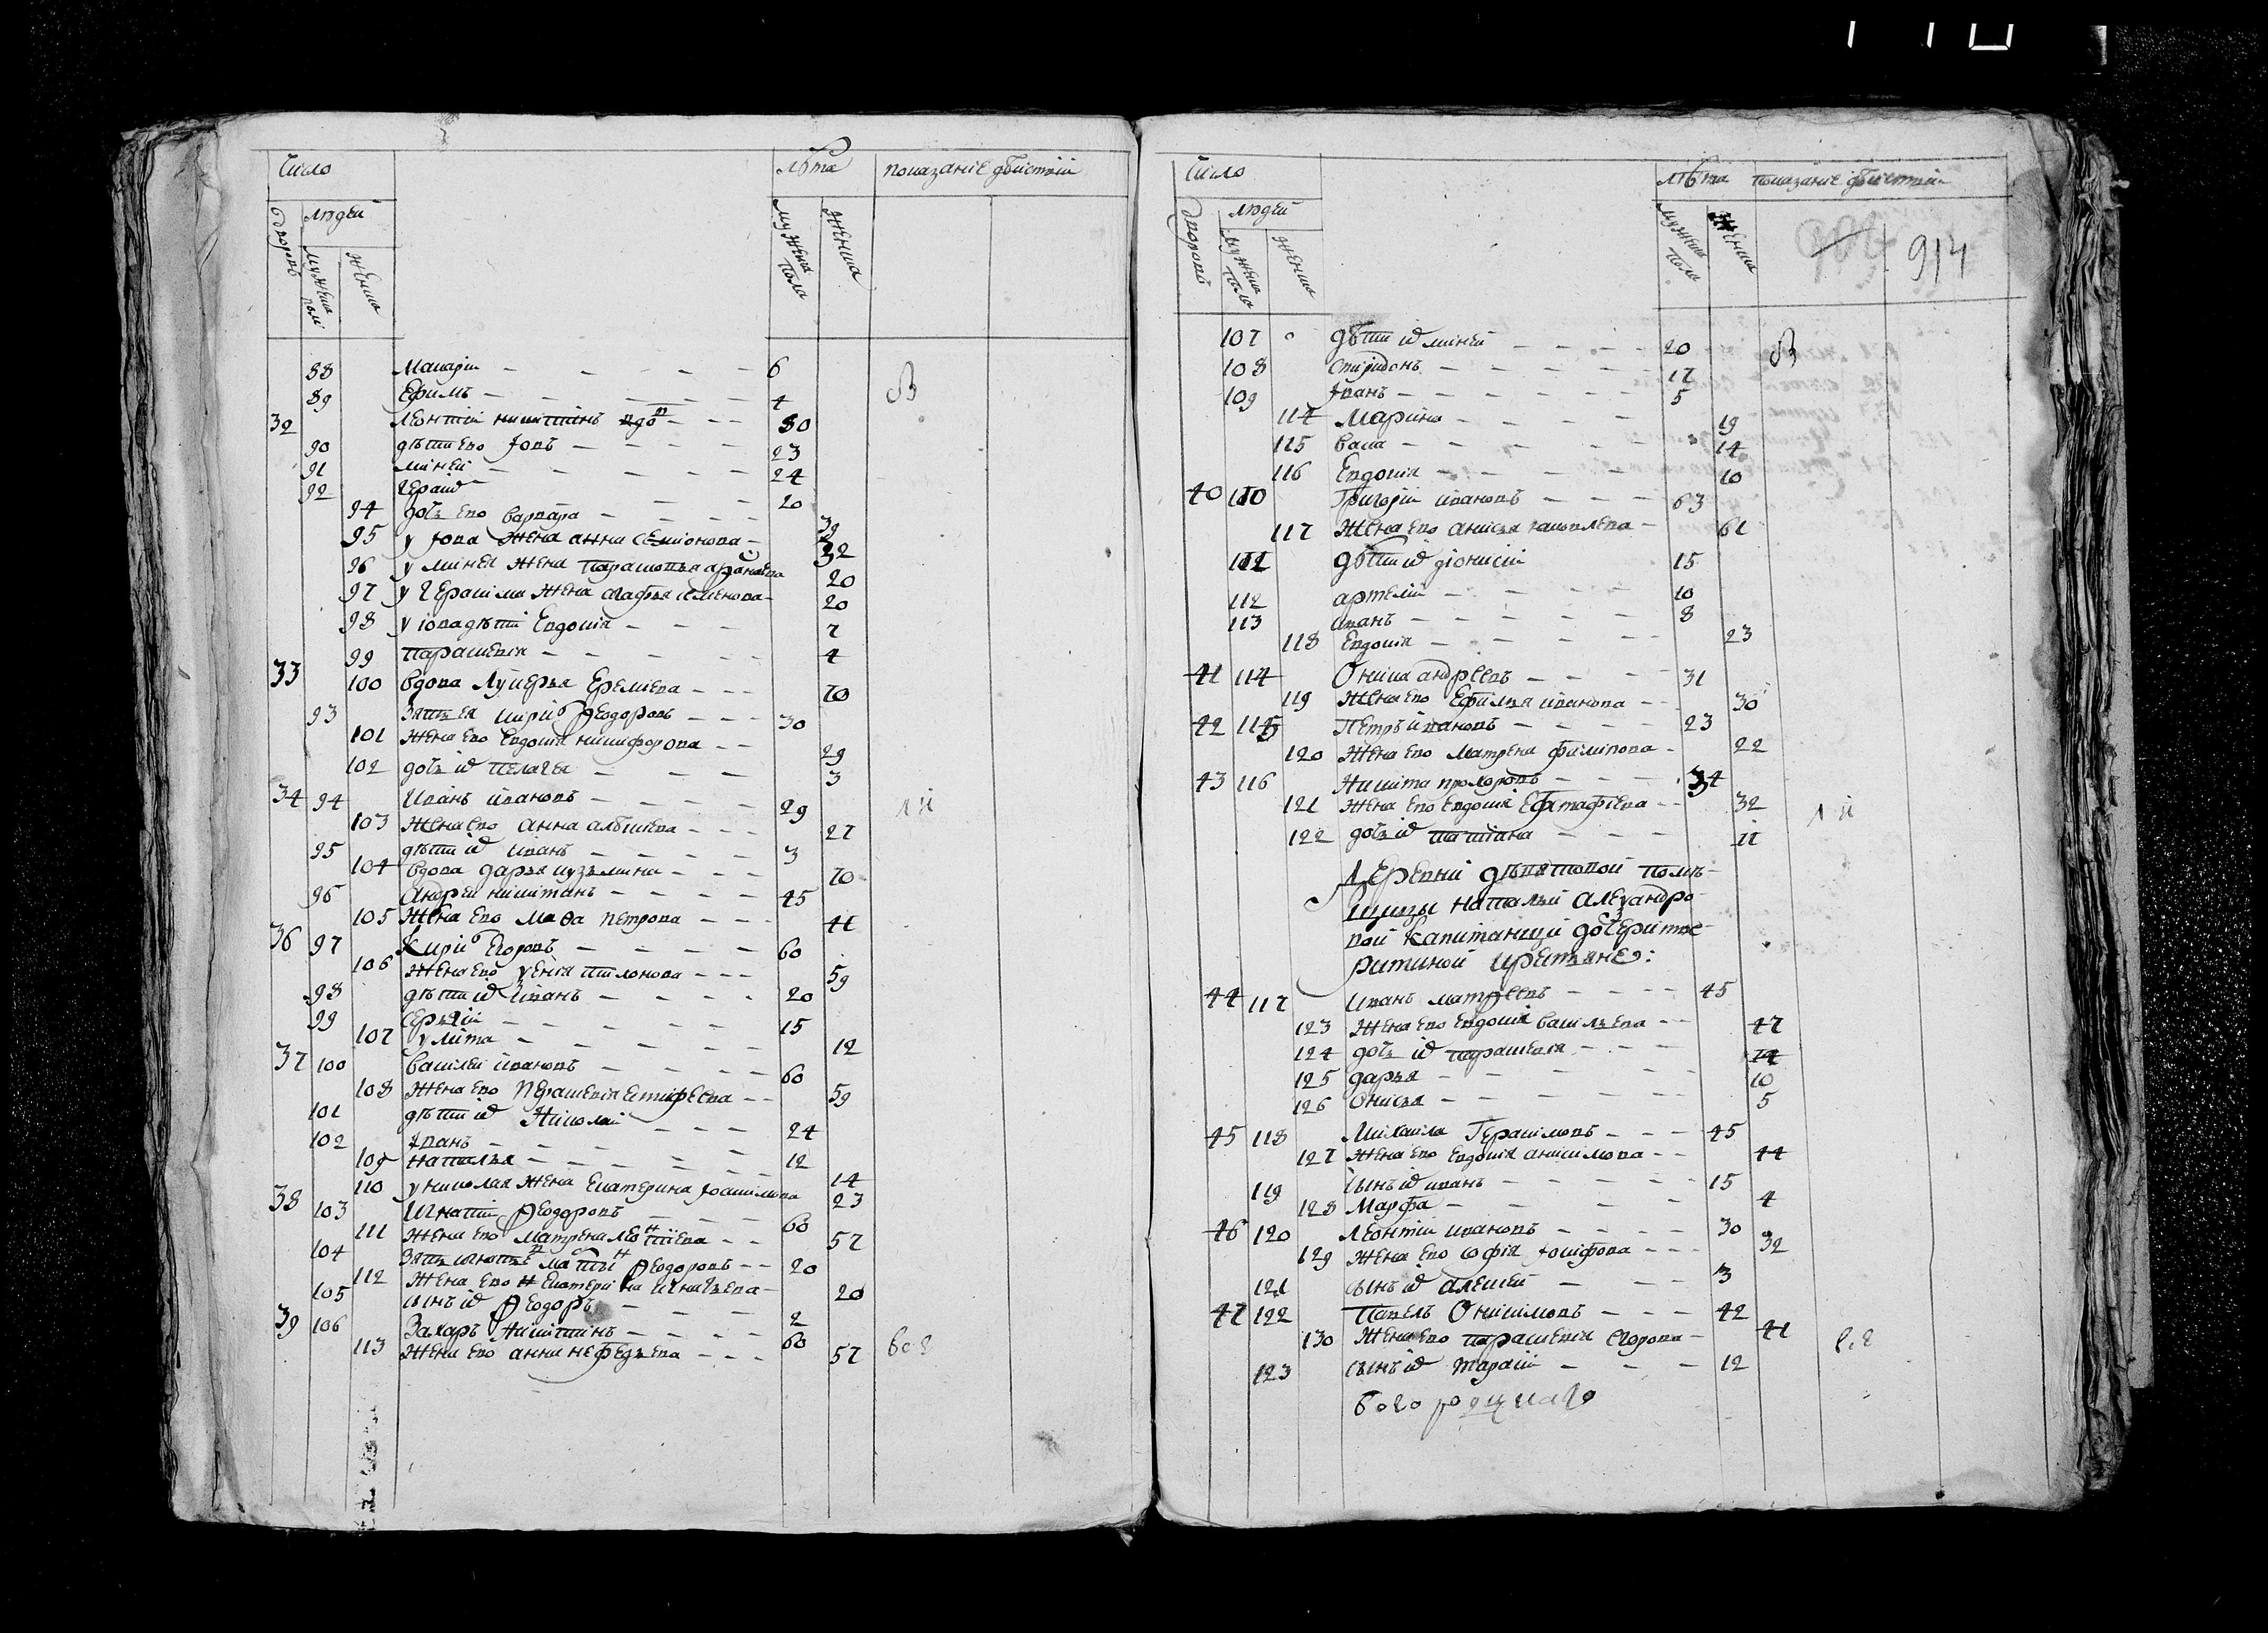 Число
Лѣта показание дѣиствій
людей
дворовъ
мужеска полу
женска
мужеска пола
женска
88 Макаріи 6
89 Ефимъ 4
32 Леонтіи никитинъ вдов 80
90 дѣти ево Іовъ 23
91 миней 24
92 Герасі 20
94 дочь ево варвара 39
95 у Іова жена анна семионова 32
96 у минея жена парасковья 20
97 у Герасима жена агафья семенова 20
98 у іова дѣти Евдокия 7
99 парасковия 4
33 100 вдова Лукерья Еремиева 70
93 Зять ея кирил Ѳеодоровъ 30
101 жена ево евдокия никифорова 29
102 дочь их пелагея 3
34 94 Иванъ ивановъ 29
103 жена ево анна алексиева 27
95 дѣти их иванъ 3
104 вдова дарья кузьмина 70
96 Андреи никитинъ 45
105 жена ево марфа петрова 41
36 97 Кирил Егоровъ 60
106 жена ево 59
98 дѣти их иванъ 20
99 Сергіи 15
107 улита 12
37 100 Василеи ивановъ 60
108 жена ево 59
101 дѣти их Николаи 24
102 Іванъ 12
109 наталья 14
110 у николая жена Екатерина 23
38 103 Игнатіи Ѳеодоровъ 60
111 жена ево матрена леонтіева 57
104 Зять Ѳеодоровъ 20
112 жена ево Екатерина игнатьева 20
105 сынъ их Ѳеодоръ 2
39 106 Захаръ Никитинъ 60
113 жена ево анна нефедьева 57
Число
Лѣта показание дѣиствій
людей
дворовъ
мужеска пола
женска
мужеска пола
женска
914
107 дѣти их миней 20
108 спиридонъ 17
109 Іванъ 5
114 Марина 19
115 васа 14
116 Евдокия 10
40 110 Григоріи ивановъ 63
117 жена ево анисья 61
111 дѣти их діонисіи 15
112 артемій 10
113 иванъ 8
118 Евдокия 23
41 114 Оника андреевъ 31
119 жена ево Ефимья иванова 30
42 115 Петръ ивановъ 23
120 жена ево матрена филипова 22
43 116 Никита прохоровъ 34
121 жена ево евдокия Ефстафиева 32
122 дочь их татиана 11
Деревни дѣвятовой помѣ-
щицы натальи алезандро-
вой капитанши дочери
крестьяне:
44 117 Иванъ матвеевъ 45
123 жена ево евдокия васильева 47
124 дочь их парасковия 14
125 дарья 10
126 Онисья 5
45 118 Михаила Герасимовъ 45
127 жена ево евдокия анисимова 44
119 сынъ их иванъ 15
128 Марфа 4
46 120 Леонтіи ивановъ 30
129 жена ево софія Іосифова 32
121 сынъ их алексей 3
47 122 Павелъ Онисимовъ 42
130 жена ево парасковия егорова 41
123 сынъ их тарасіи 12